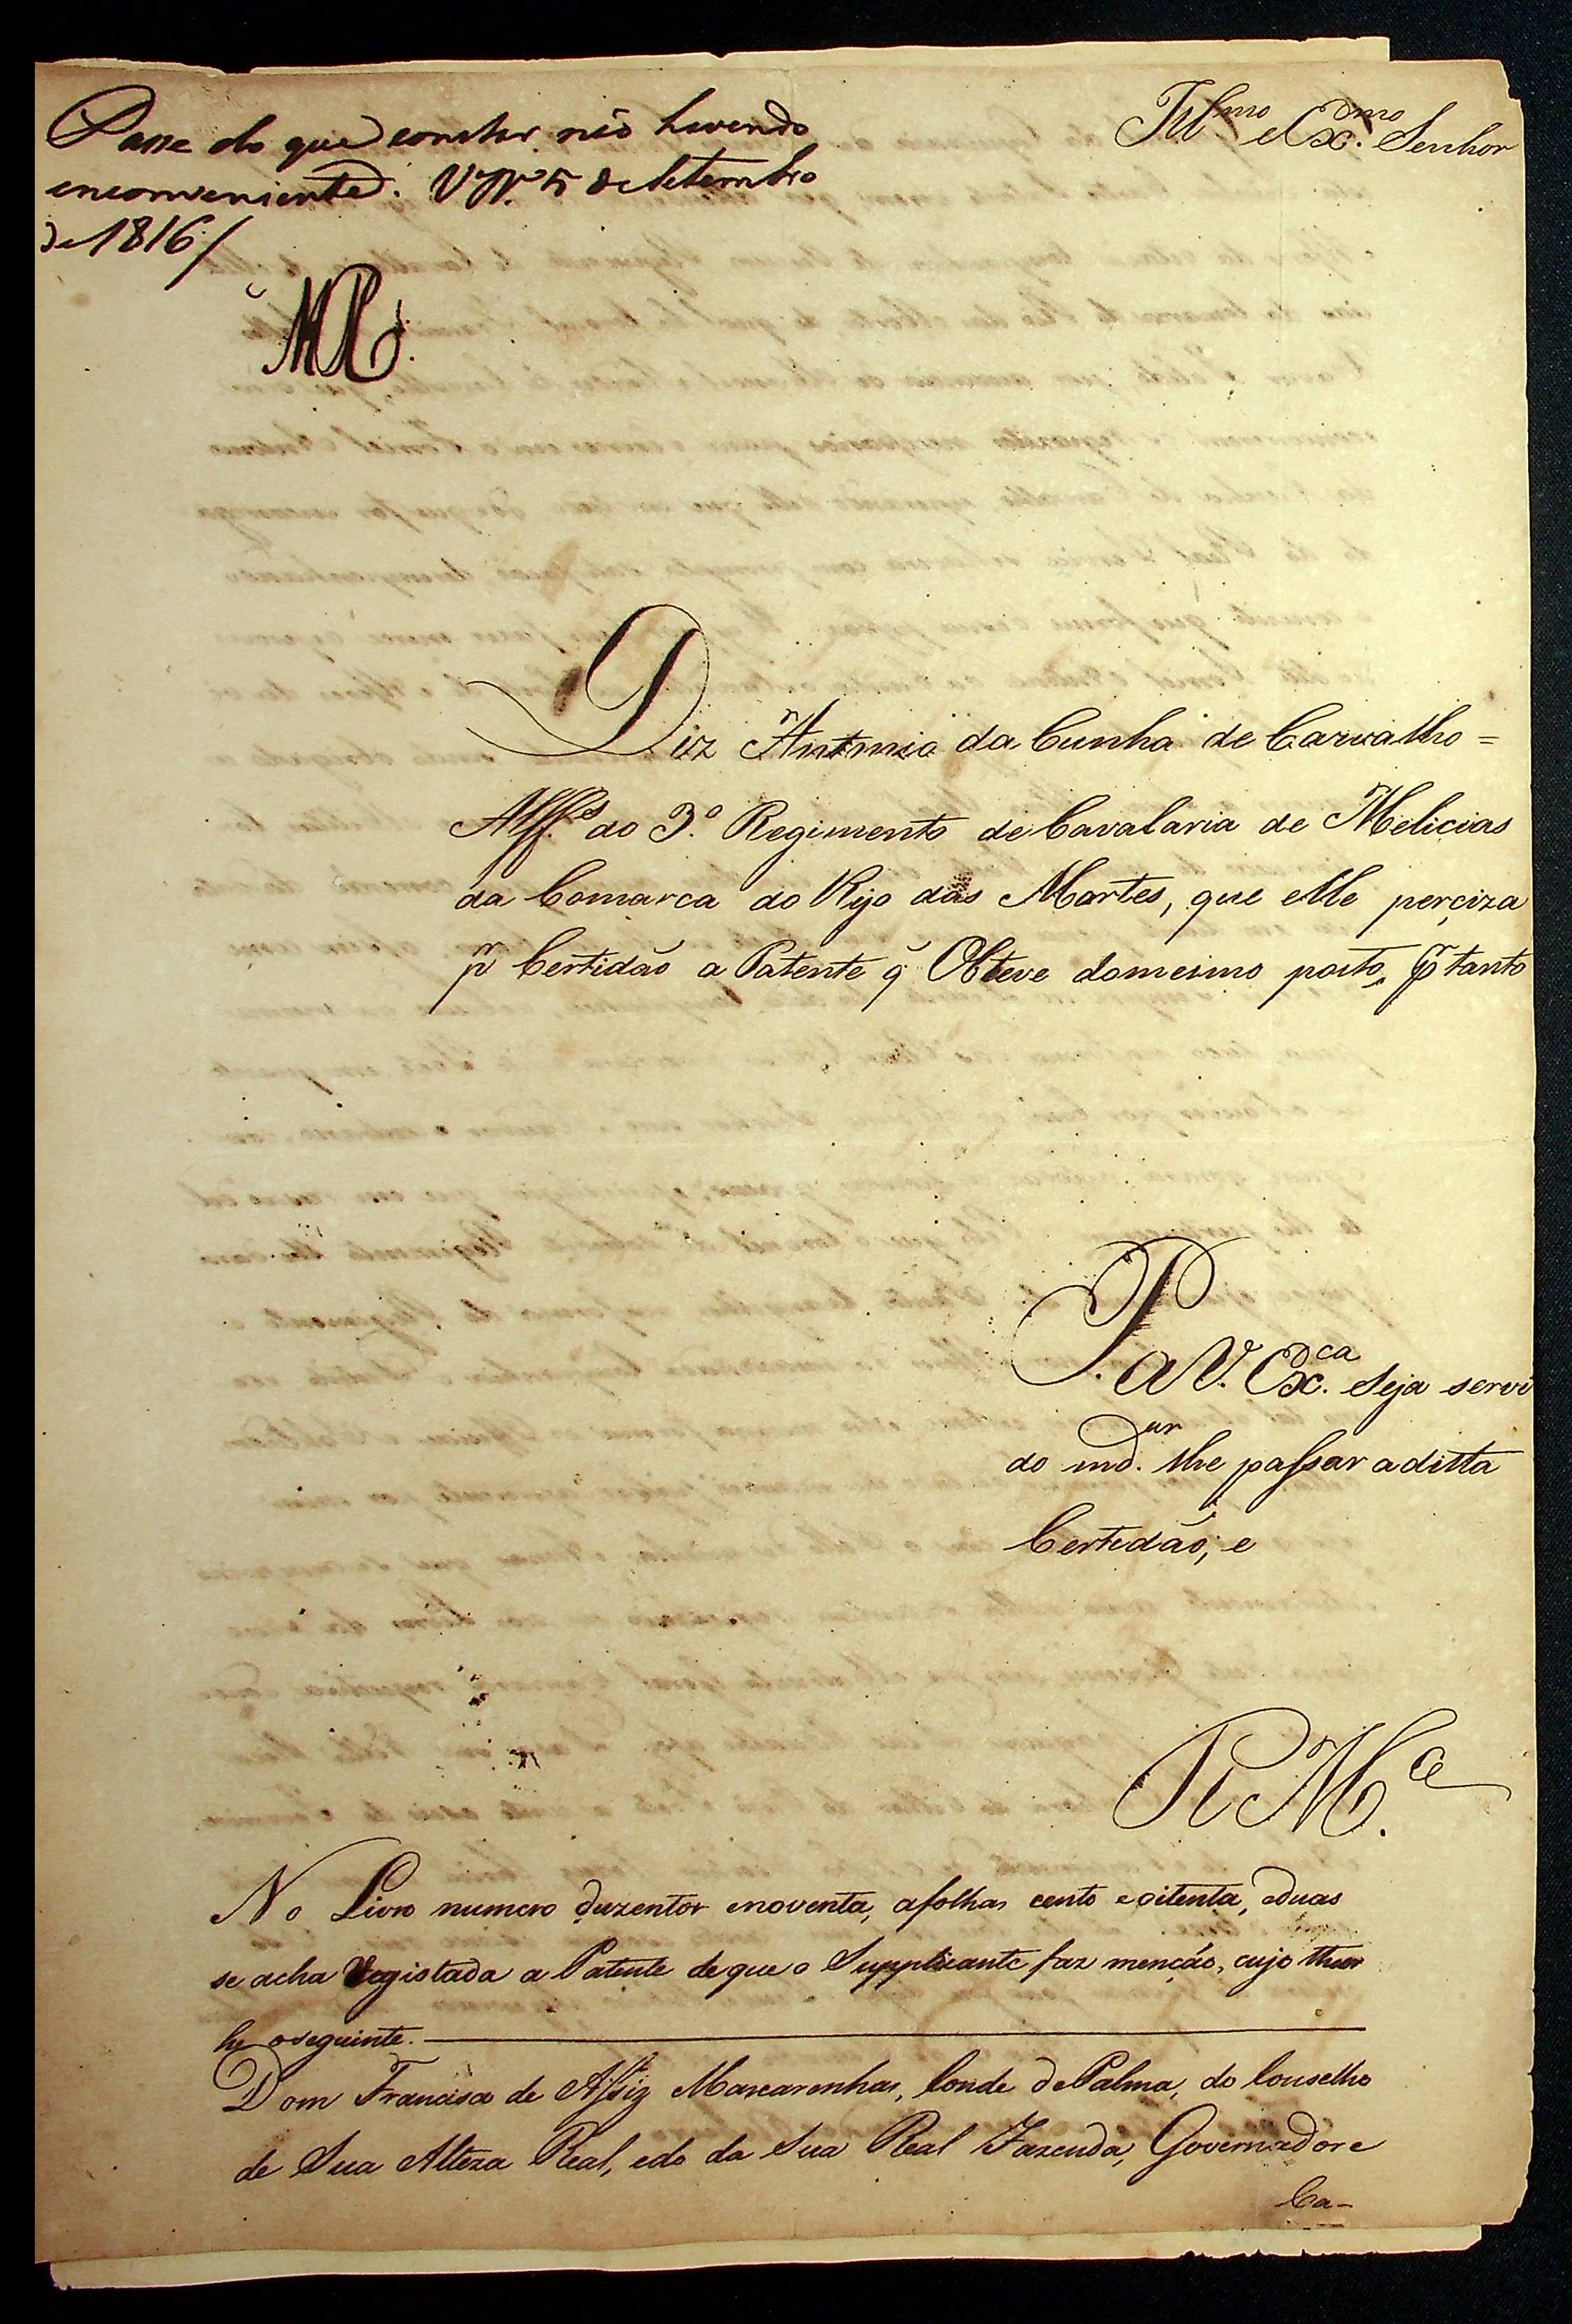 Passe do que constar não havendo
enconveniente. V. R. 5 de Setembro
de 1816/
Ill.mo e Ex.mo Senhor
Diz Antonio da Cunha de Carvalho =
Alff.es do 3.º Regimento de Cavalaria de Melicias
da Comarca do Rijo das Mortes, que elle perciza
p.r Certidão a Patente q̃ Obteve domesmo posto, p.r tanto
P. a V. Ex.ca Seja servi
do md.ar lhe passar aditta
Certedão, e
R. M.ce
No Livro numero duzentos enoventa, afolhas cento eoitenta, eduas
se acha Registada a Patente deque o Supplicante faz menção, cujo theor
he oseguinte.
Dom Francisco de Assiz Mascarenhas, Conde de Palma, do Conselho
de Sua Alteza Real, edo da Sua Real Fazenda, Governador e
Ca-